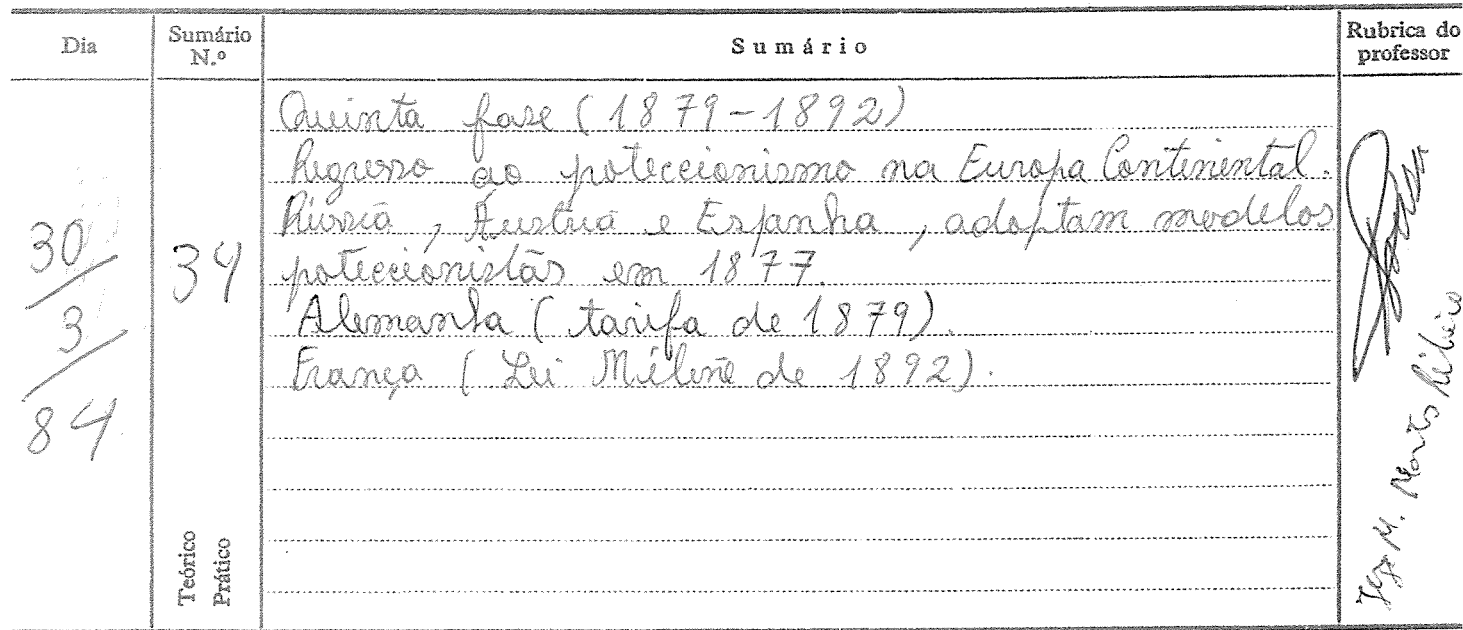 Dia
Sumário N.º
Sumário
Rubrica do professor
30/3/84
34
Quinta fase (1879-1892)
Regresso ao poteccionismo na Europa Continental.
Rússia, Áustria e Espanha, adoptam modelos
poteccionistas em 1877.
Alemanha (tarifa de 1879).
França (Lei Méline de 1892).
Teórico
Prático
M. Ribeiro